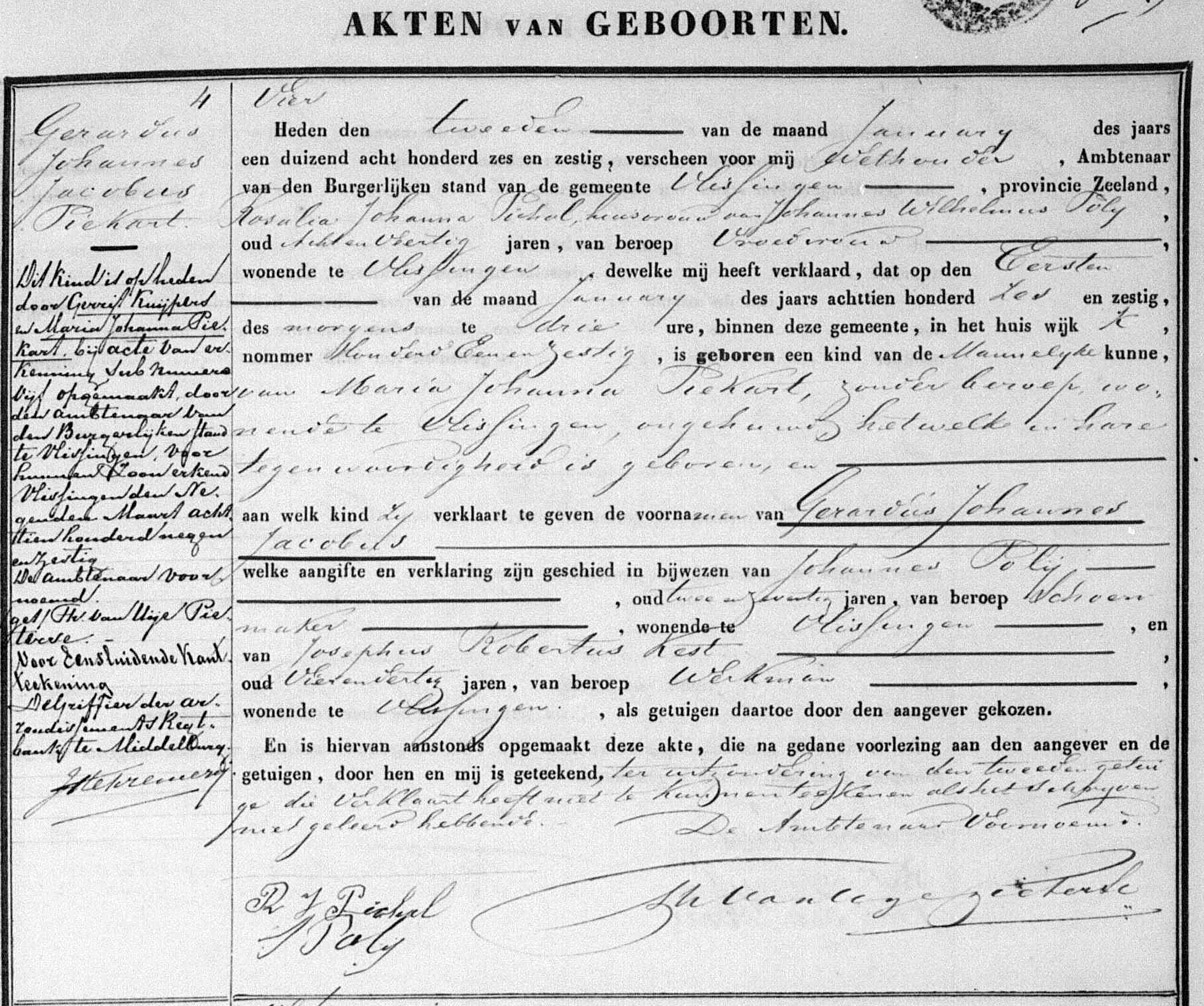 AKTEN VAN GEBOORTEN.
4
Gerardus
Johannes
Jacobus
Piekart.
Dit kind is op heden
door Gerrit Kuijpers
en Maria Johanna Pie-
kart, bij acte van er-
kenning sub numero
vijf opgemaakt, door
den ambtenaar van
den Burgerlijken stand
te Vlissingen, voor
hunnen Zoon erkend
Vlissingen den Ne-
genden Maart acht-
tien honderd negen
en zestig
De Ambtenaar voor-
noemd.
get/ Th. van Uije Pie-
terse.
Voor Eensluidende Kant-
teekening
De Griffier der ar-
rondissements Regt-
bank te Middelburg.
Vier
Heden den tweeden van de maand January des jaars
een duizend acht honderd zes en zestig, verscheen voor mij Wethouder, Ambtenaar
van den Burgerlijken stand van de gemeente Vlissingen, provincie Zeeland,
Rosalia Johanna Pichel, huisvrouw van Johannes Wilhelmus Poly,
oud Acht en Veertig jaren, van beroep Vroedvrouw,
wonende te Vlissingen, dewelke mij heeft verklaard, dat op den Eersten
van de maand January des jaars achttien honderd zes en zestig,
des morgens te drie ure, binnen deze gemeente, in het huis wijk K,
nommer Honderd Een en Zestig, is geboren een kind van de Mannelyke kunne,
van Maria Johanna Piekart, zonder beroep, wo-
nende te Vlissingen, ongehuwd, hetwelk in hare
tegenwoordigheid is geboren, en
aan welk kind zy verklaart te geven de voornamen van Gerardus Johannes
Jacobus
welke aangifte en verklaring zijn geschied in bijwezen van Johannes Polij,
, oud twee en zeventig jaren, van beroep Schoen
maker, wonende te Vlissingen, en
van Josephus Robertus Kest,
oud Vierendertig jaren, van beroep Werkman,
wonende te Vlissingen., als getuigen daartoe door den aangever gekozen.
En is hiervan aanstonds opgemaakt deze akte, die na gedane voorlezing aan den aangever en de
getuigen, door hen en mij is geteekend, ter uitzondering van den tweeden getui
ge die Verklaart heeft niet te kunnen teekenen als het schryven
niet geleerd hebbende.- De Ambtenaar Voornoemd.
R J Pichel
J Polij
Th van Uye Pieterse